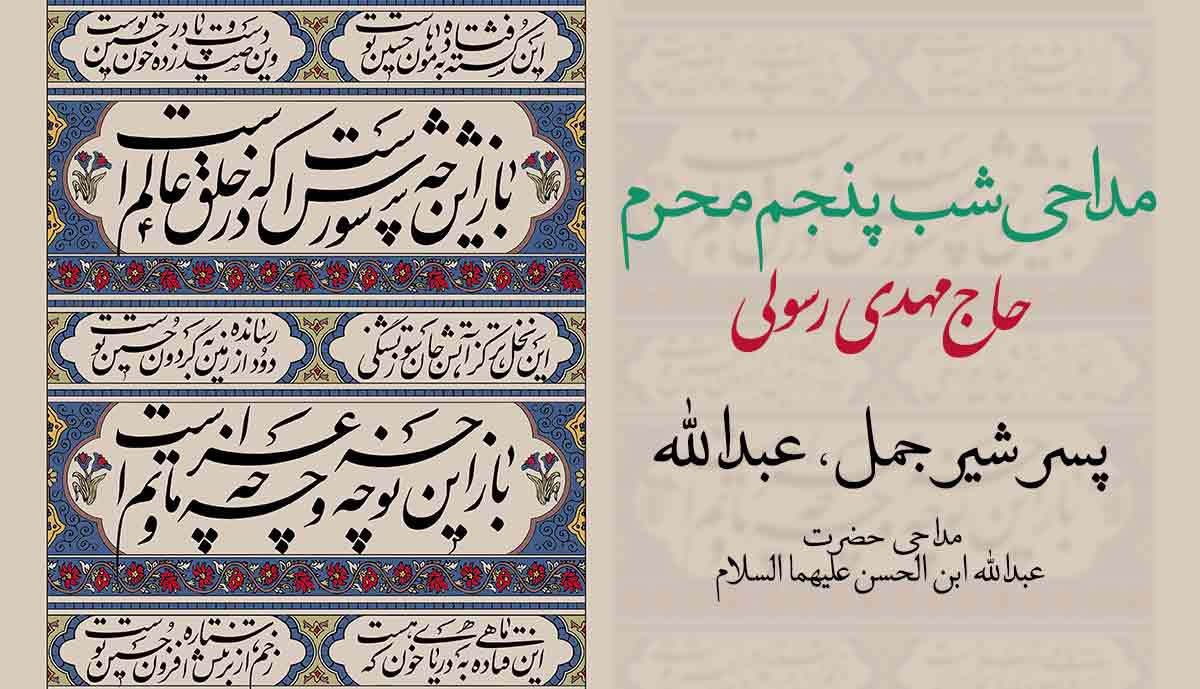 مداحی شب پنجم محرم
حاج مهدی رسولی
پسر شیر جمل، عبدالله
مداحی حضرت
عبدالله ابن الحسن علیهما السلام
این کشته فتاده به هامون حسین توست
وین صید دست و پا زده در خون حسین توست
باز این چه شورش است که در خلق عالم است
این نخل تر کز آتش جان سوز تشنگی
دود از زمین رسانده به گردون حسین توست
باز این چه نوحه و چه عزا و چه ماتم است
این ماهی فتاده به دریای خون که هست
زخم از ستاره بر تنش افزون حسین توست